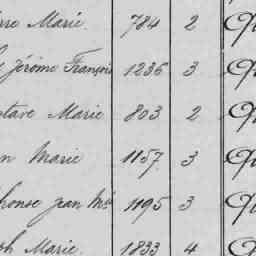 rre Marie. 784 2
Jérôme François 1236 3
stave Marie 803 2
n Marie 1157 3
phonse Jean Mie 1195 3
ph Marie. 1833 4